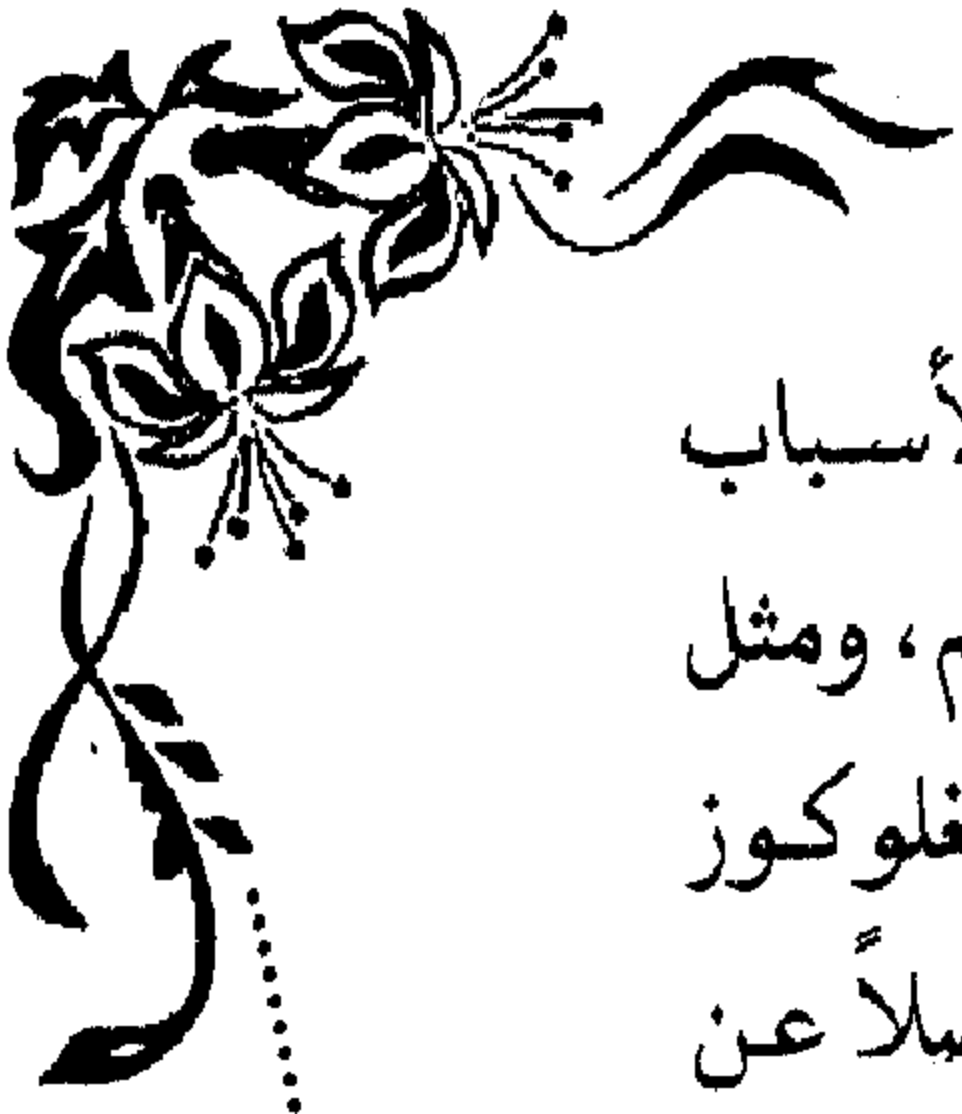 لأسباب
م، ومثل
غلوكوز
عن